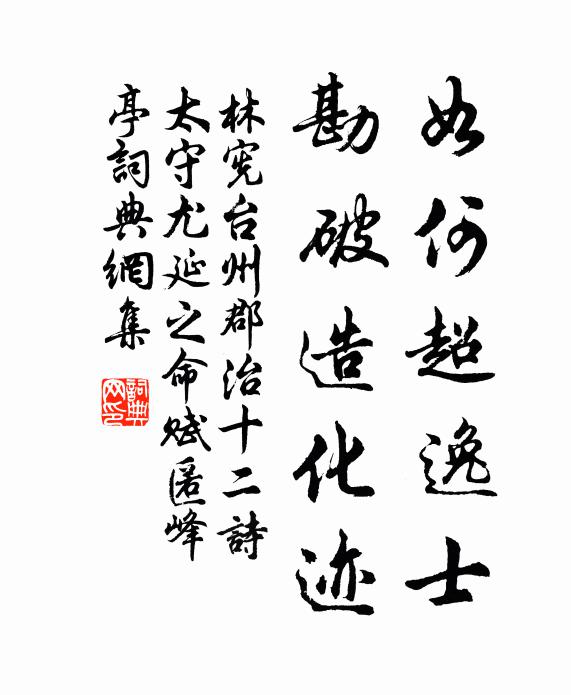 如何超逸士
勘破造化迹
林宪台州郡治十二詩
太守尤延之命赋匿峰
亭詞典網集
詞典网印